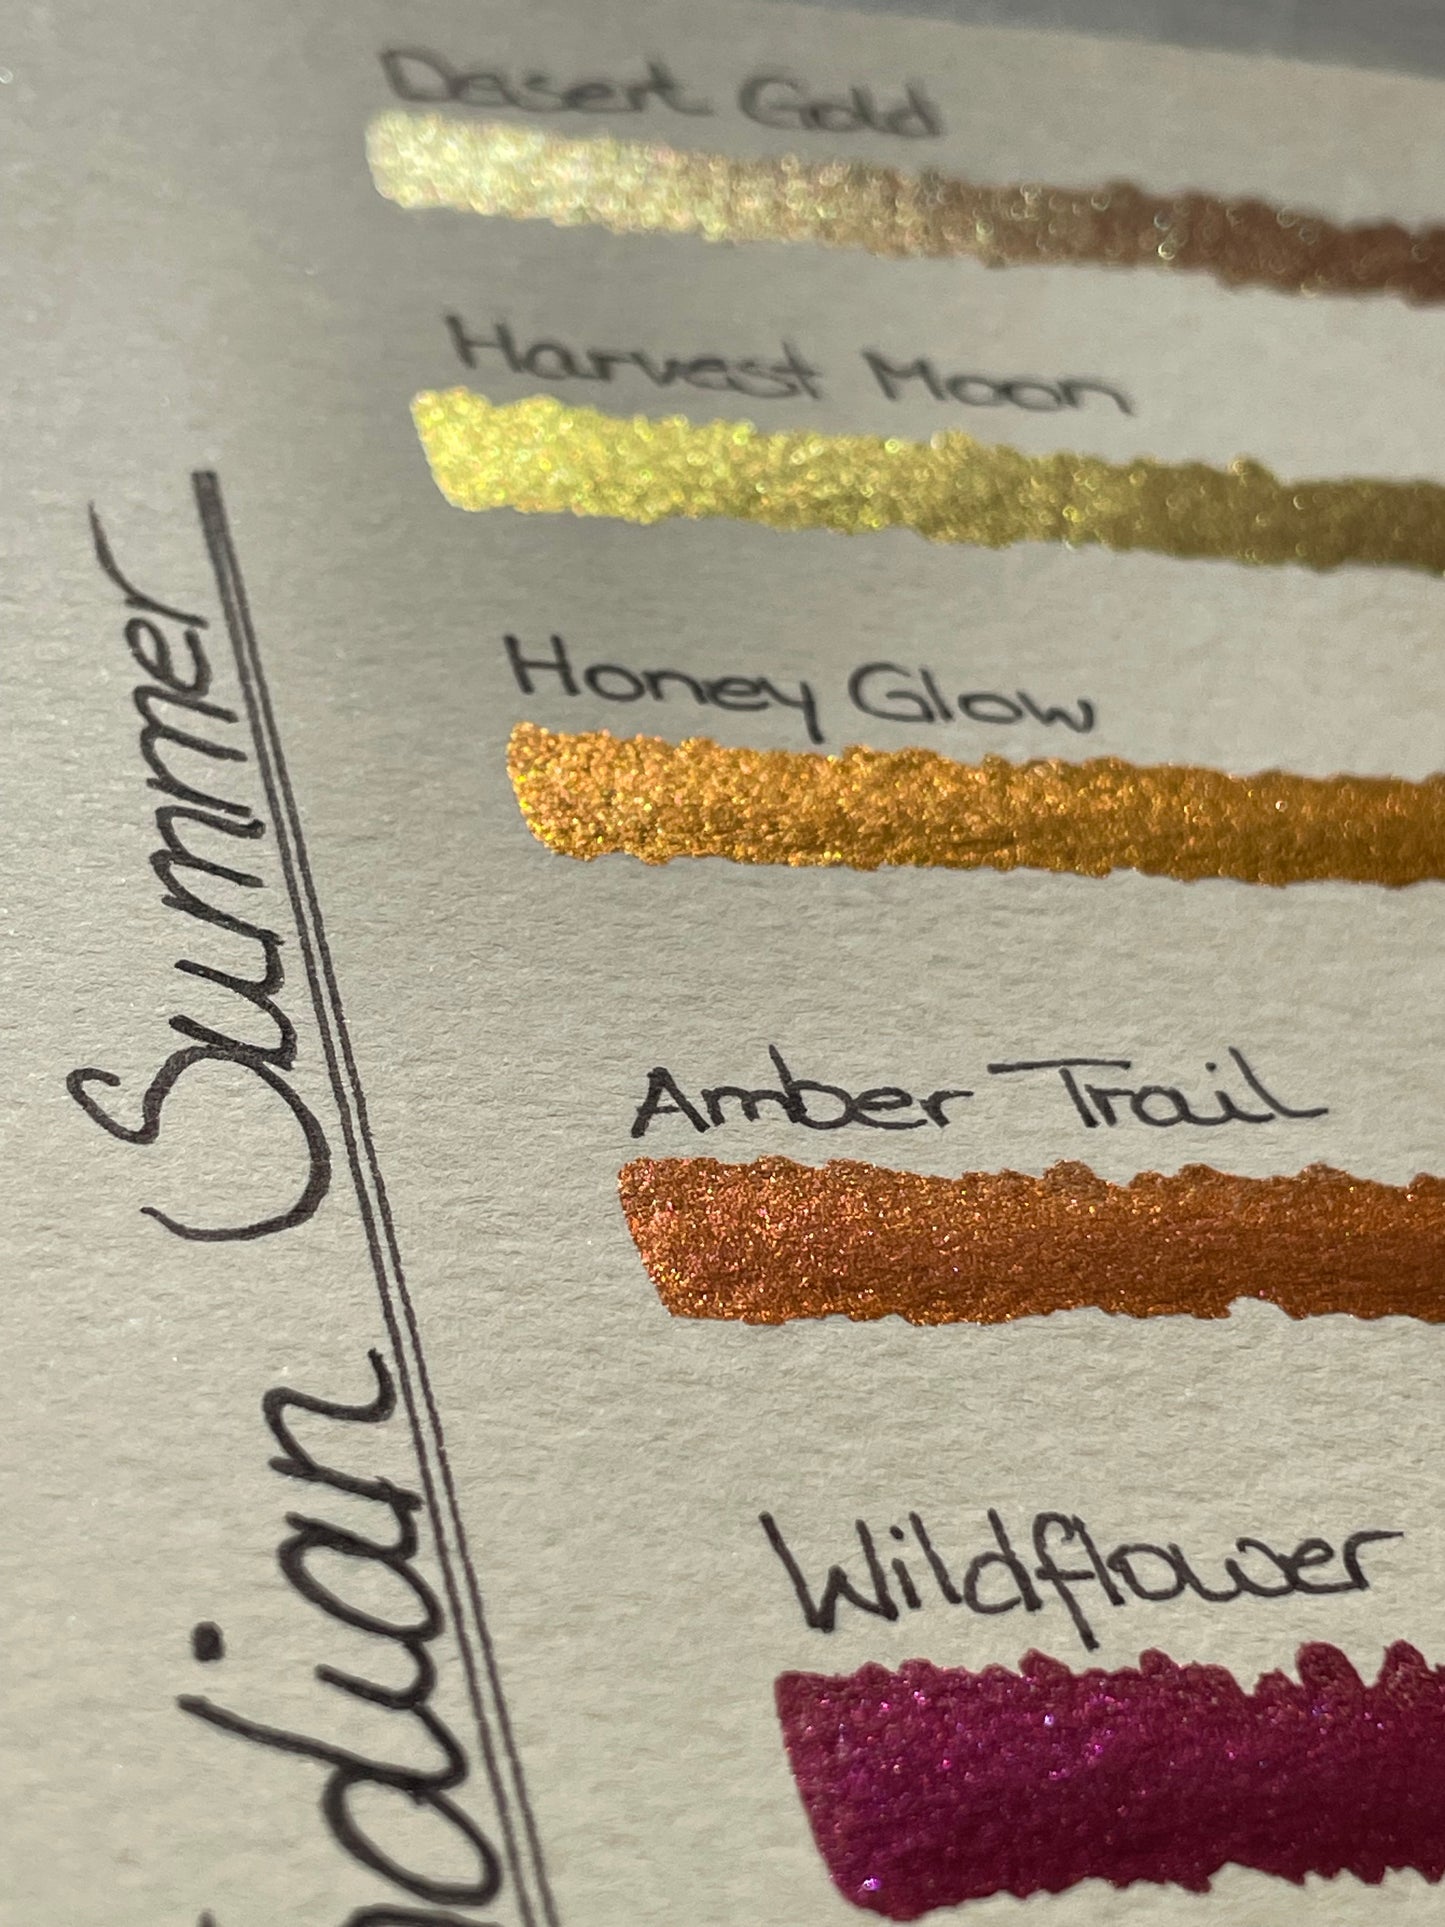 Desert Gold
Harvest Moon
Honey Glow
Amber Trail
Wildflower
ndian Summer